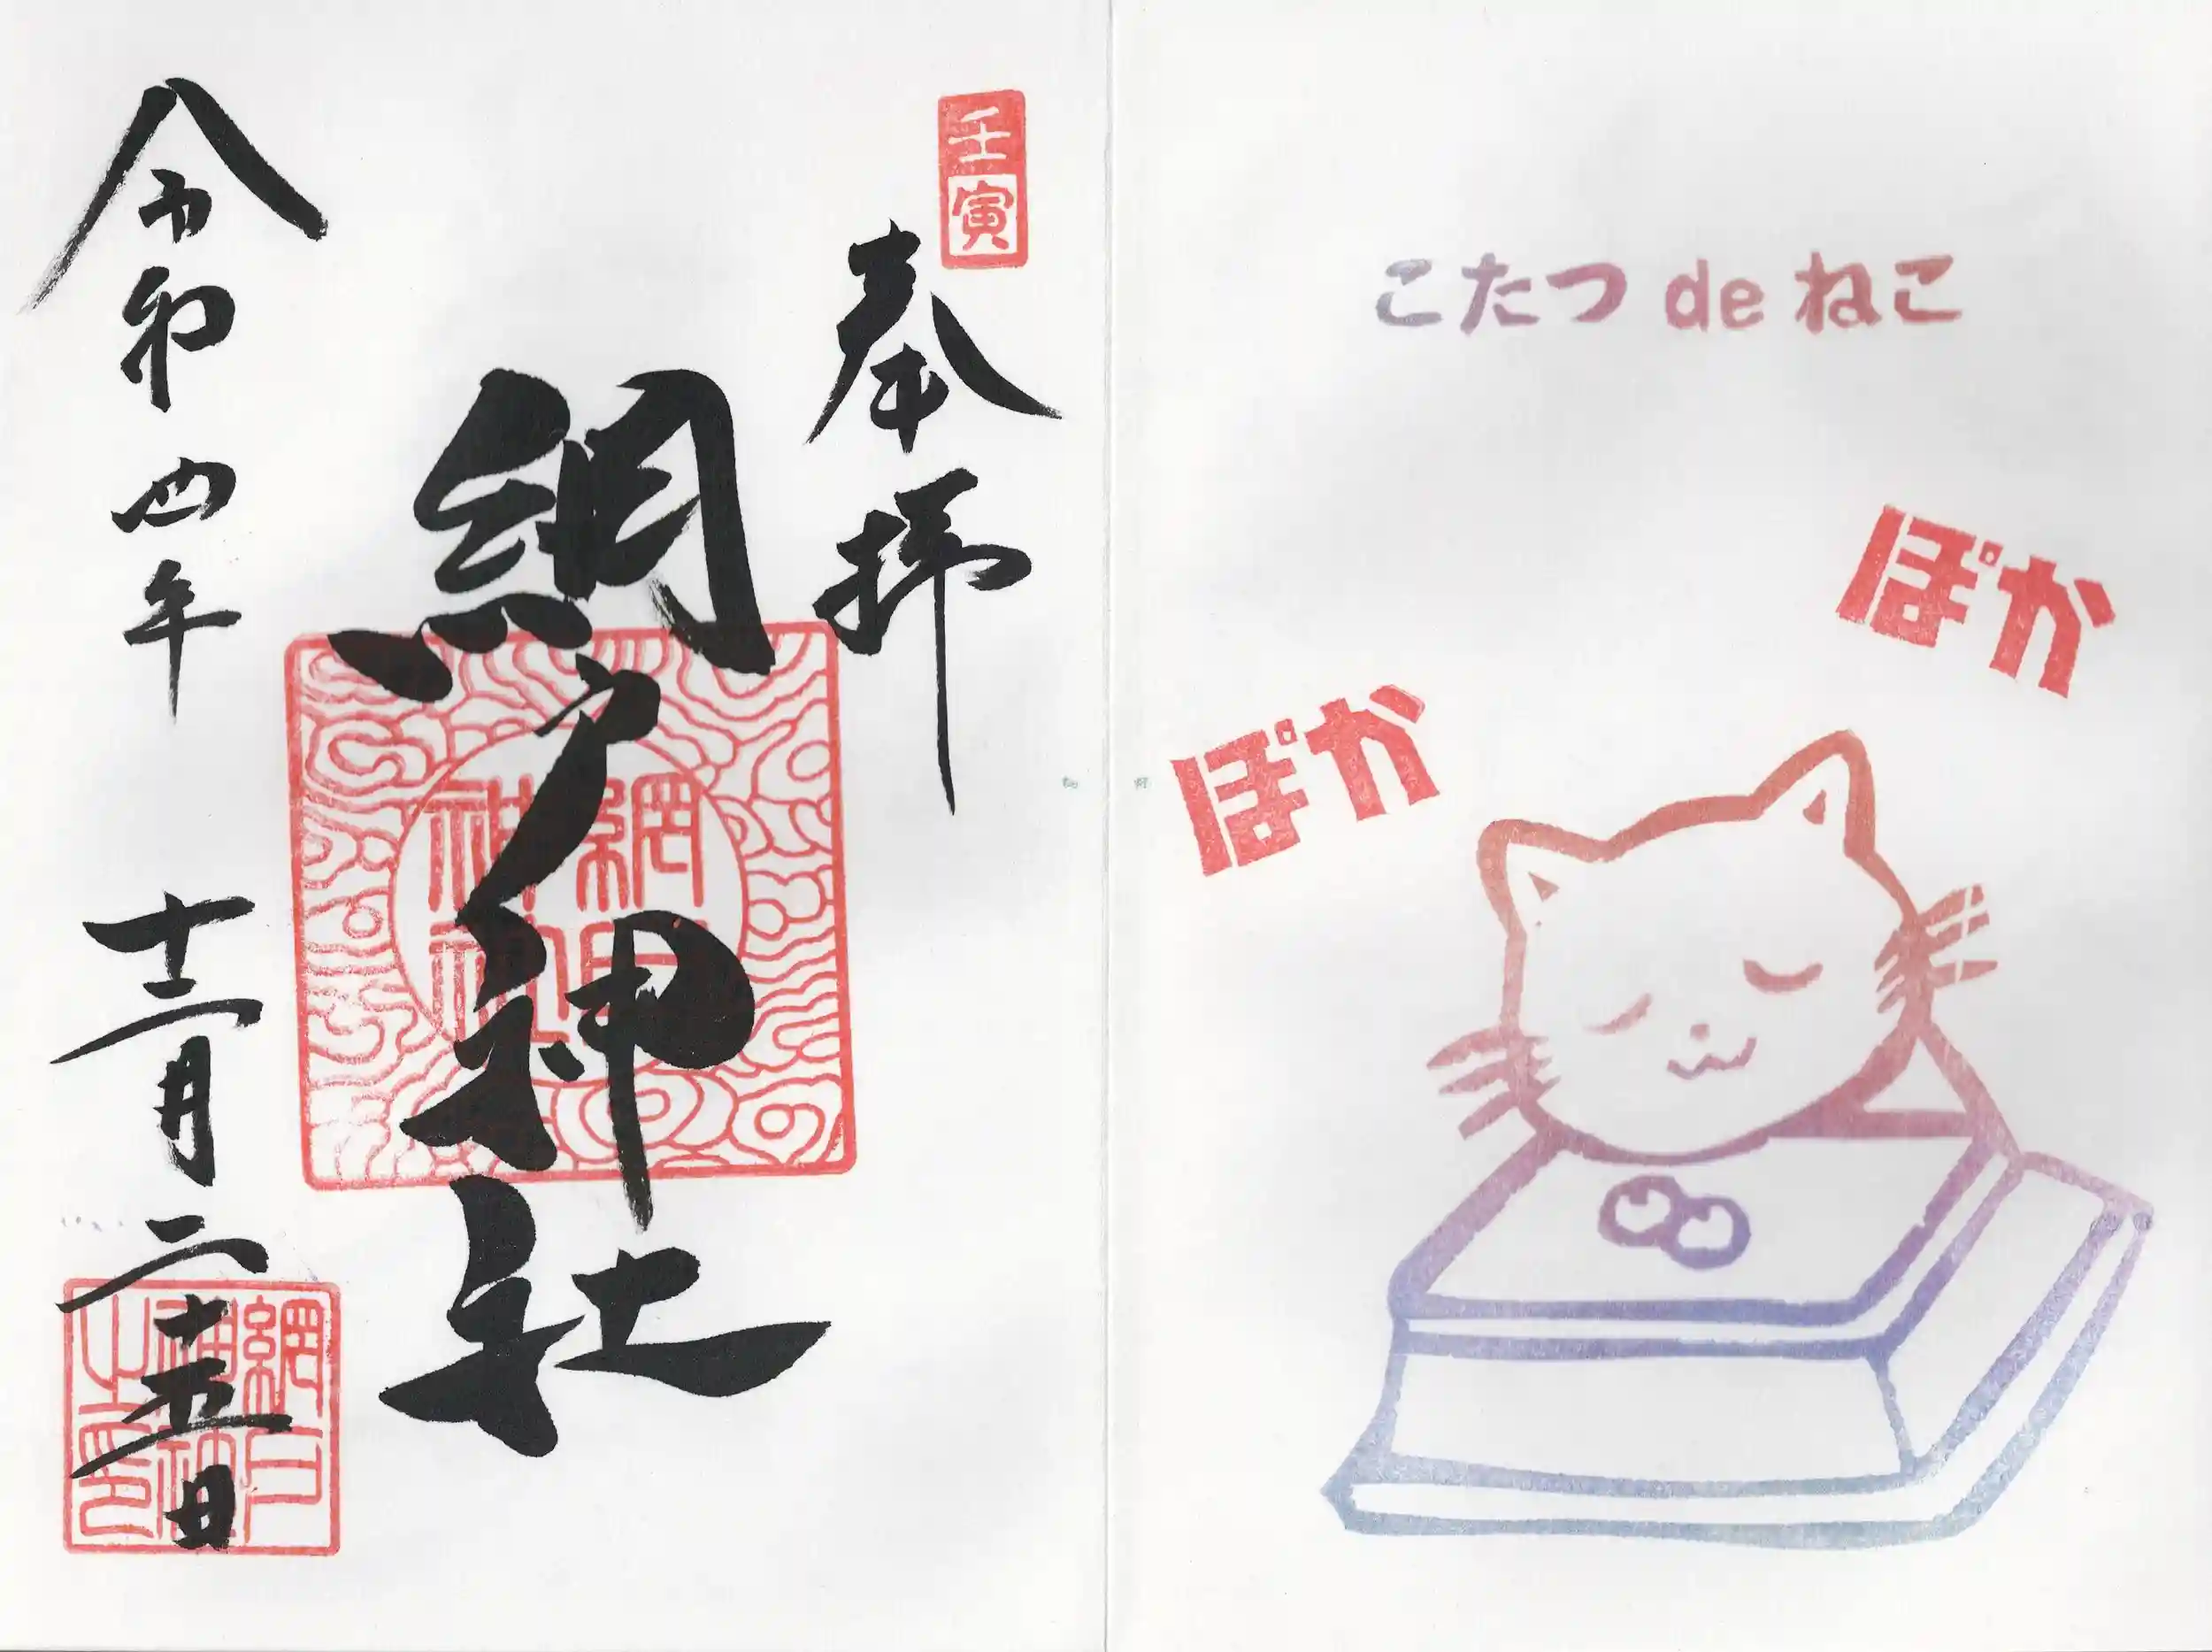 こたつ de ねこ
ぽか
ぽか
壬寅
奉拝
網戸神社
令和四年 十二月二十五日
網戸神社
網戸神社之印